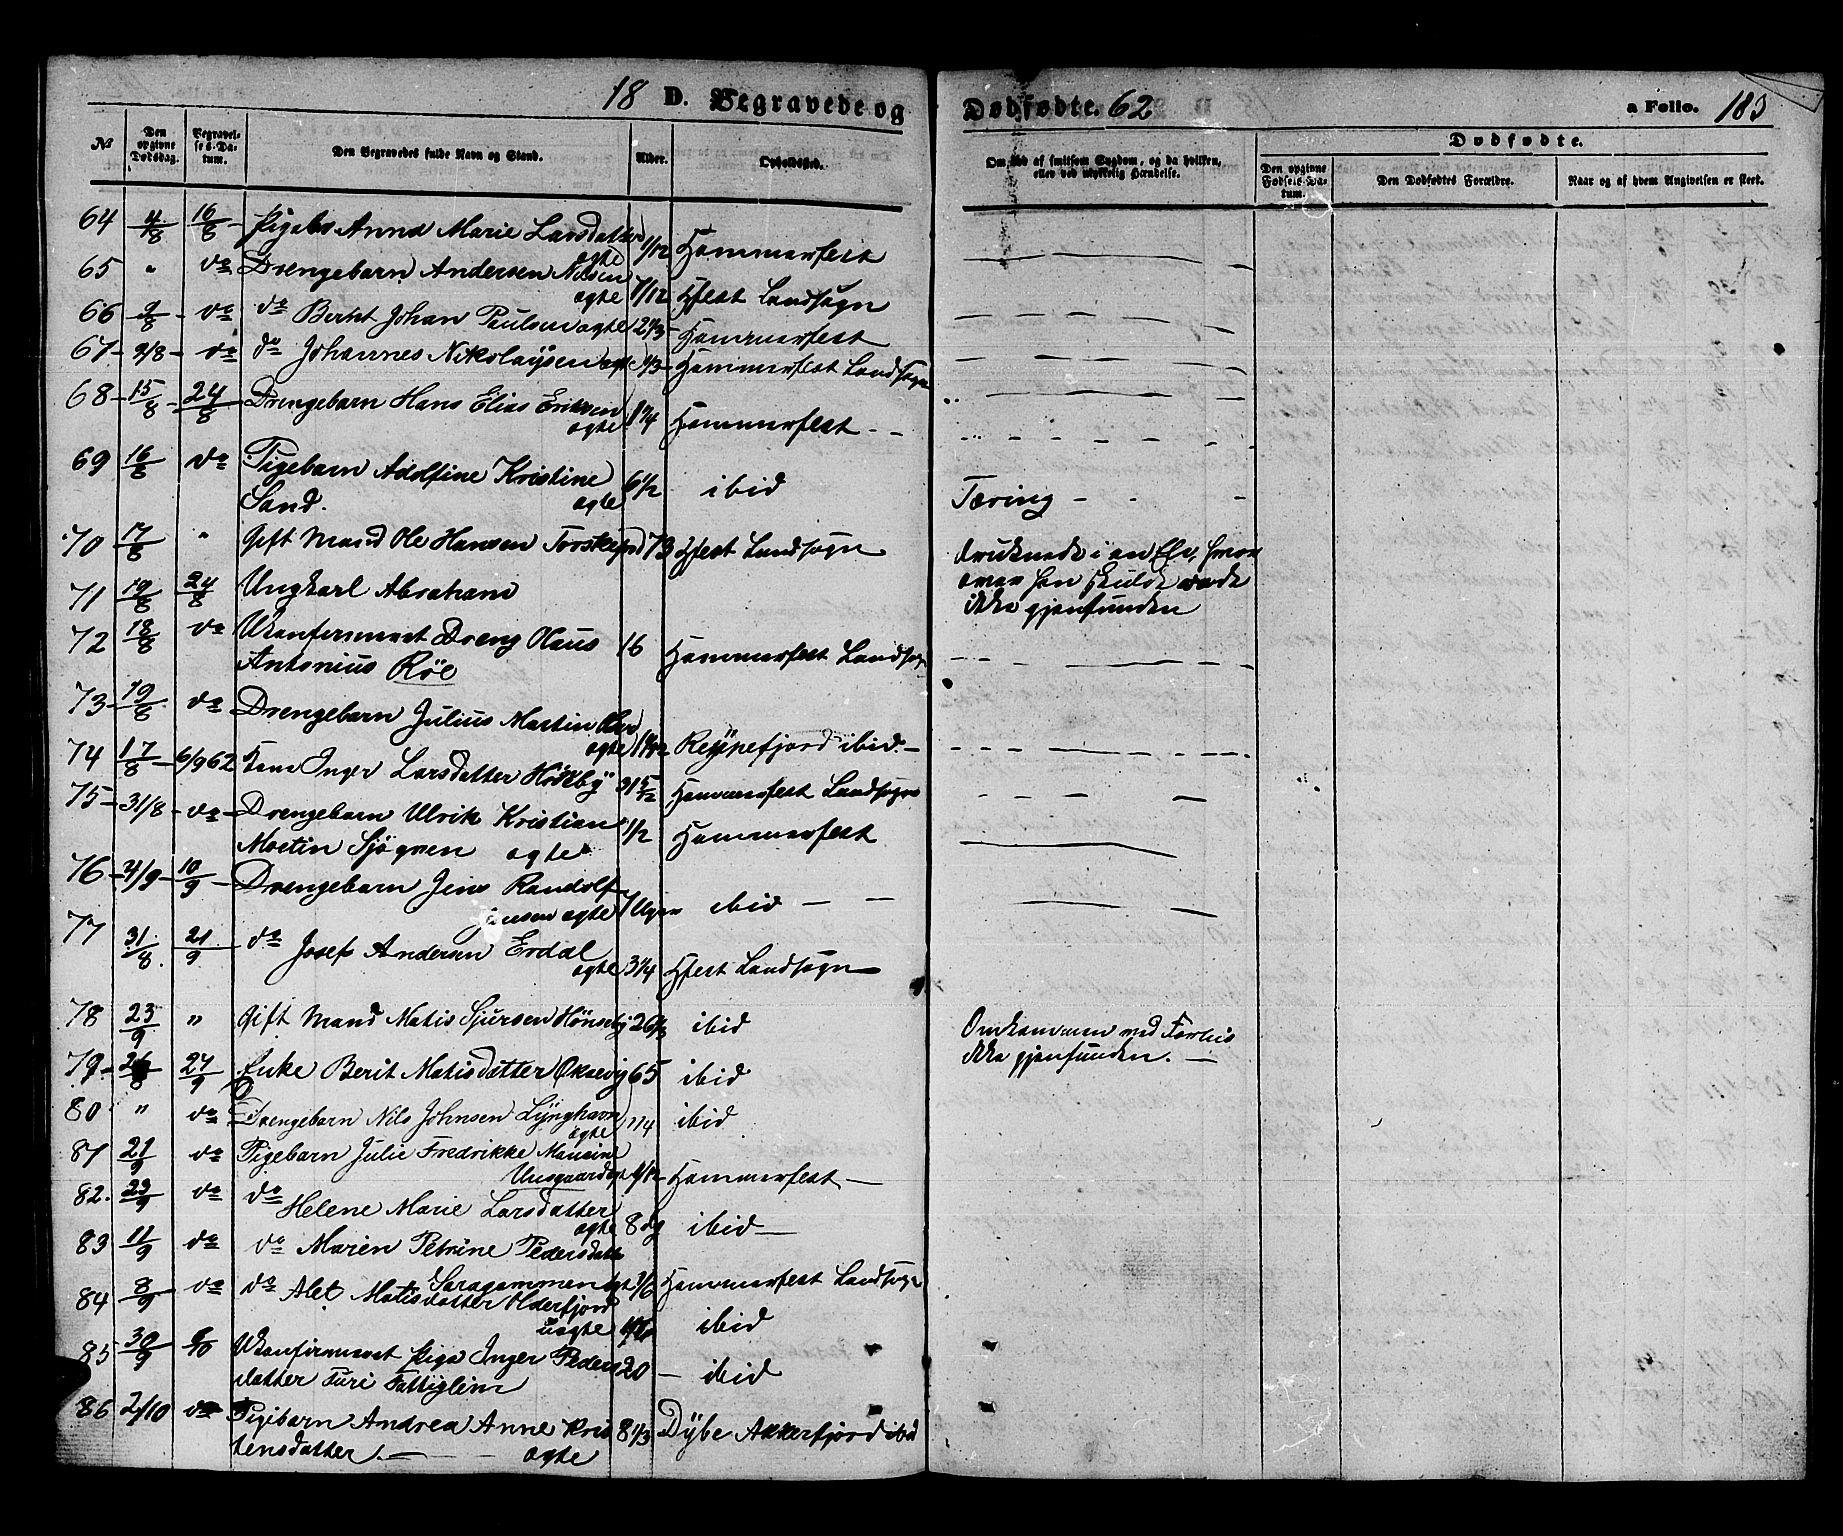 18 D. Begravede og
Dødfødte. 62
a Folio. 183
No
Den opgivne Dødsdag.
Begravelses-Datum.
Den Begravedes fulde Navn og Stand.
Alder.
Opholdssted.
Om død af smitsom Sygdom, og da hvilken, eller ved ulykkelig Hændelse.
Dødfødte.
Den opgivne Fødsels-Datum.
Den Dødfødtes Forældre.
Naar og af hvem Angivelsen er skeet.
64 4/8 16/8 Pigeb Anna Marie Larsdatter
ægte 1/12 Hammerfest
65 " do Drengebarn Andersen Nilsen
ægte 1/12 Hfest Landsogn
66 9/8 do do Berht Johan Paulsen ægte 2 1/3 Hammerfest
67 9/8 do do Johannes Nikolaysen ægt 1/3 Hammerfest Landsogn
68 15/8 24/8 Drengebarn Hans Elias Eriksen
ægte 1 3/4 Hammerfest
69 16/8 do Pigebarn Adolfine Kristine
Sand. ægte 6 1/2 ibid Tæring
70 17/8 " Gift Mand Ole Hansen Torskefjrd 73 Hfest Landsogn druknede i en Elv, hvor
over han skulde vade
71 19/8 24/8 Ungkarl Abraham
ikke gjenfunden
72 18/8 do Ukonfirmeret Dreng Olaus 16
Antonius Røe Hammerfest Landsogn
73 19/8 do Drengebarn Julius Martin
ægte Reppefjord ibid.
74 17/8 6/9 62 Kone Inger Larsdatter Høkby 31 5/12 Hammerfest Landsogn
75 31/8 do Drengebarn Ulrik Kristian 1/2 Hammerfest
Martin Sjøgren ægte
76 4/9 10/9 Drengebarn Jens Randolf
Jensen ægte 7 Uger ibid
77 31/8 21/9 do Josef Andersen Erdal
ægte 3 1/4 Hfest Landsogn
78 23/9 " Gift Mand Matis Sjursen Hönseby 26 ibid Omkommen ved Forlis
ikke gjenfunden.
79 24/9 Enke Berit Matisdatter Oksevig 65 ibid
80 " do Drengebarn Nils Johnsen Lynghavn
ægte 1/4 ibid
81 21/9 do Pigebarn Julie Fredrikke
Uusgaard Hammerfest
82. 22/9 do do Helene Marie Larsdatter
ægte 8 dg ibid
83 11/9 do do Maren Petrine Pedersdatt
Saragammen 1/6 Hammerfest Landsogn
84 8/9 do do Alet Matisdatter Olderfjord
uægte ibid
85 30/9 Ukonfirmeret Pige Inger Peders 20 ibid
datter Furi Fattiglem
86 2/10 do Pigebarn Andrea Anne Kris 8 1/3 Dybe Akkerfjord ibid
tensdatter. ægte